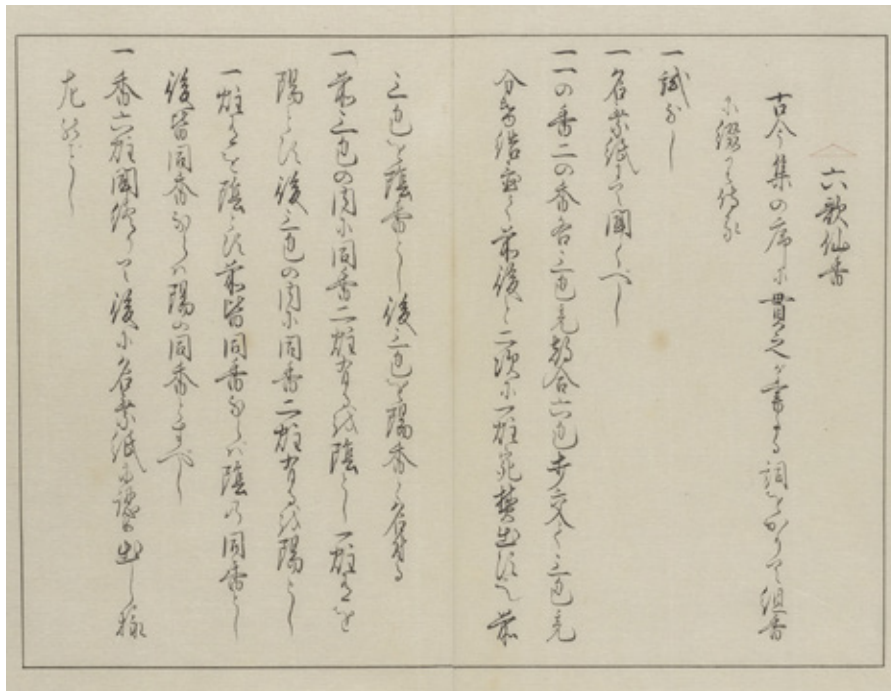 六歌仙香
古今集の序に貫之が書る詞をかりて組香
に綴り侍る
一試なし
一名乗紙にて聞くべし
一一の香二の香各三包宛都合六包打交て三包宛
分ち結置て前後と二次に一炷宛焚出すべし前
三包を陰香とし後三包を陽香と名付る
一前三包の内に同香二炷有るを陰とし一炷有を
陽とす後三包の内に同香二炷有るを陽とし
一炷有を陰とす前皆同香ならハ陰の同香とし
後皆同香ならハ陽の同香とすべし
一香六炷聞終りて後に名乗紙に認め出し様
左のごとし